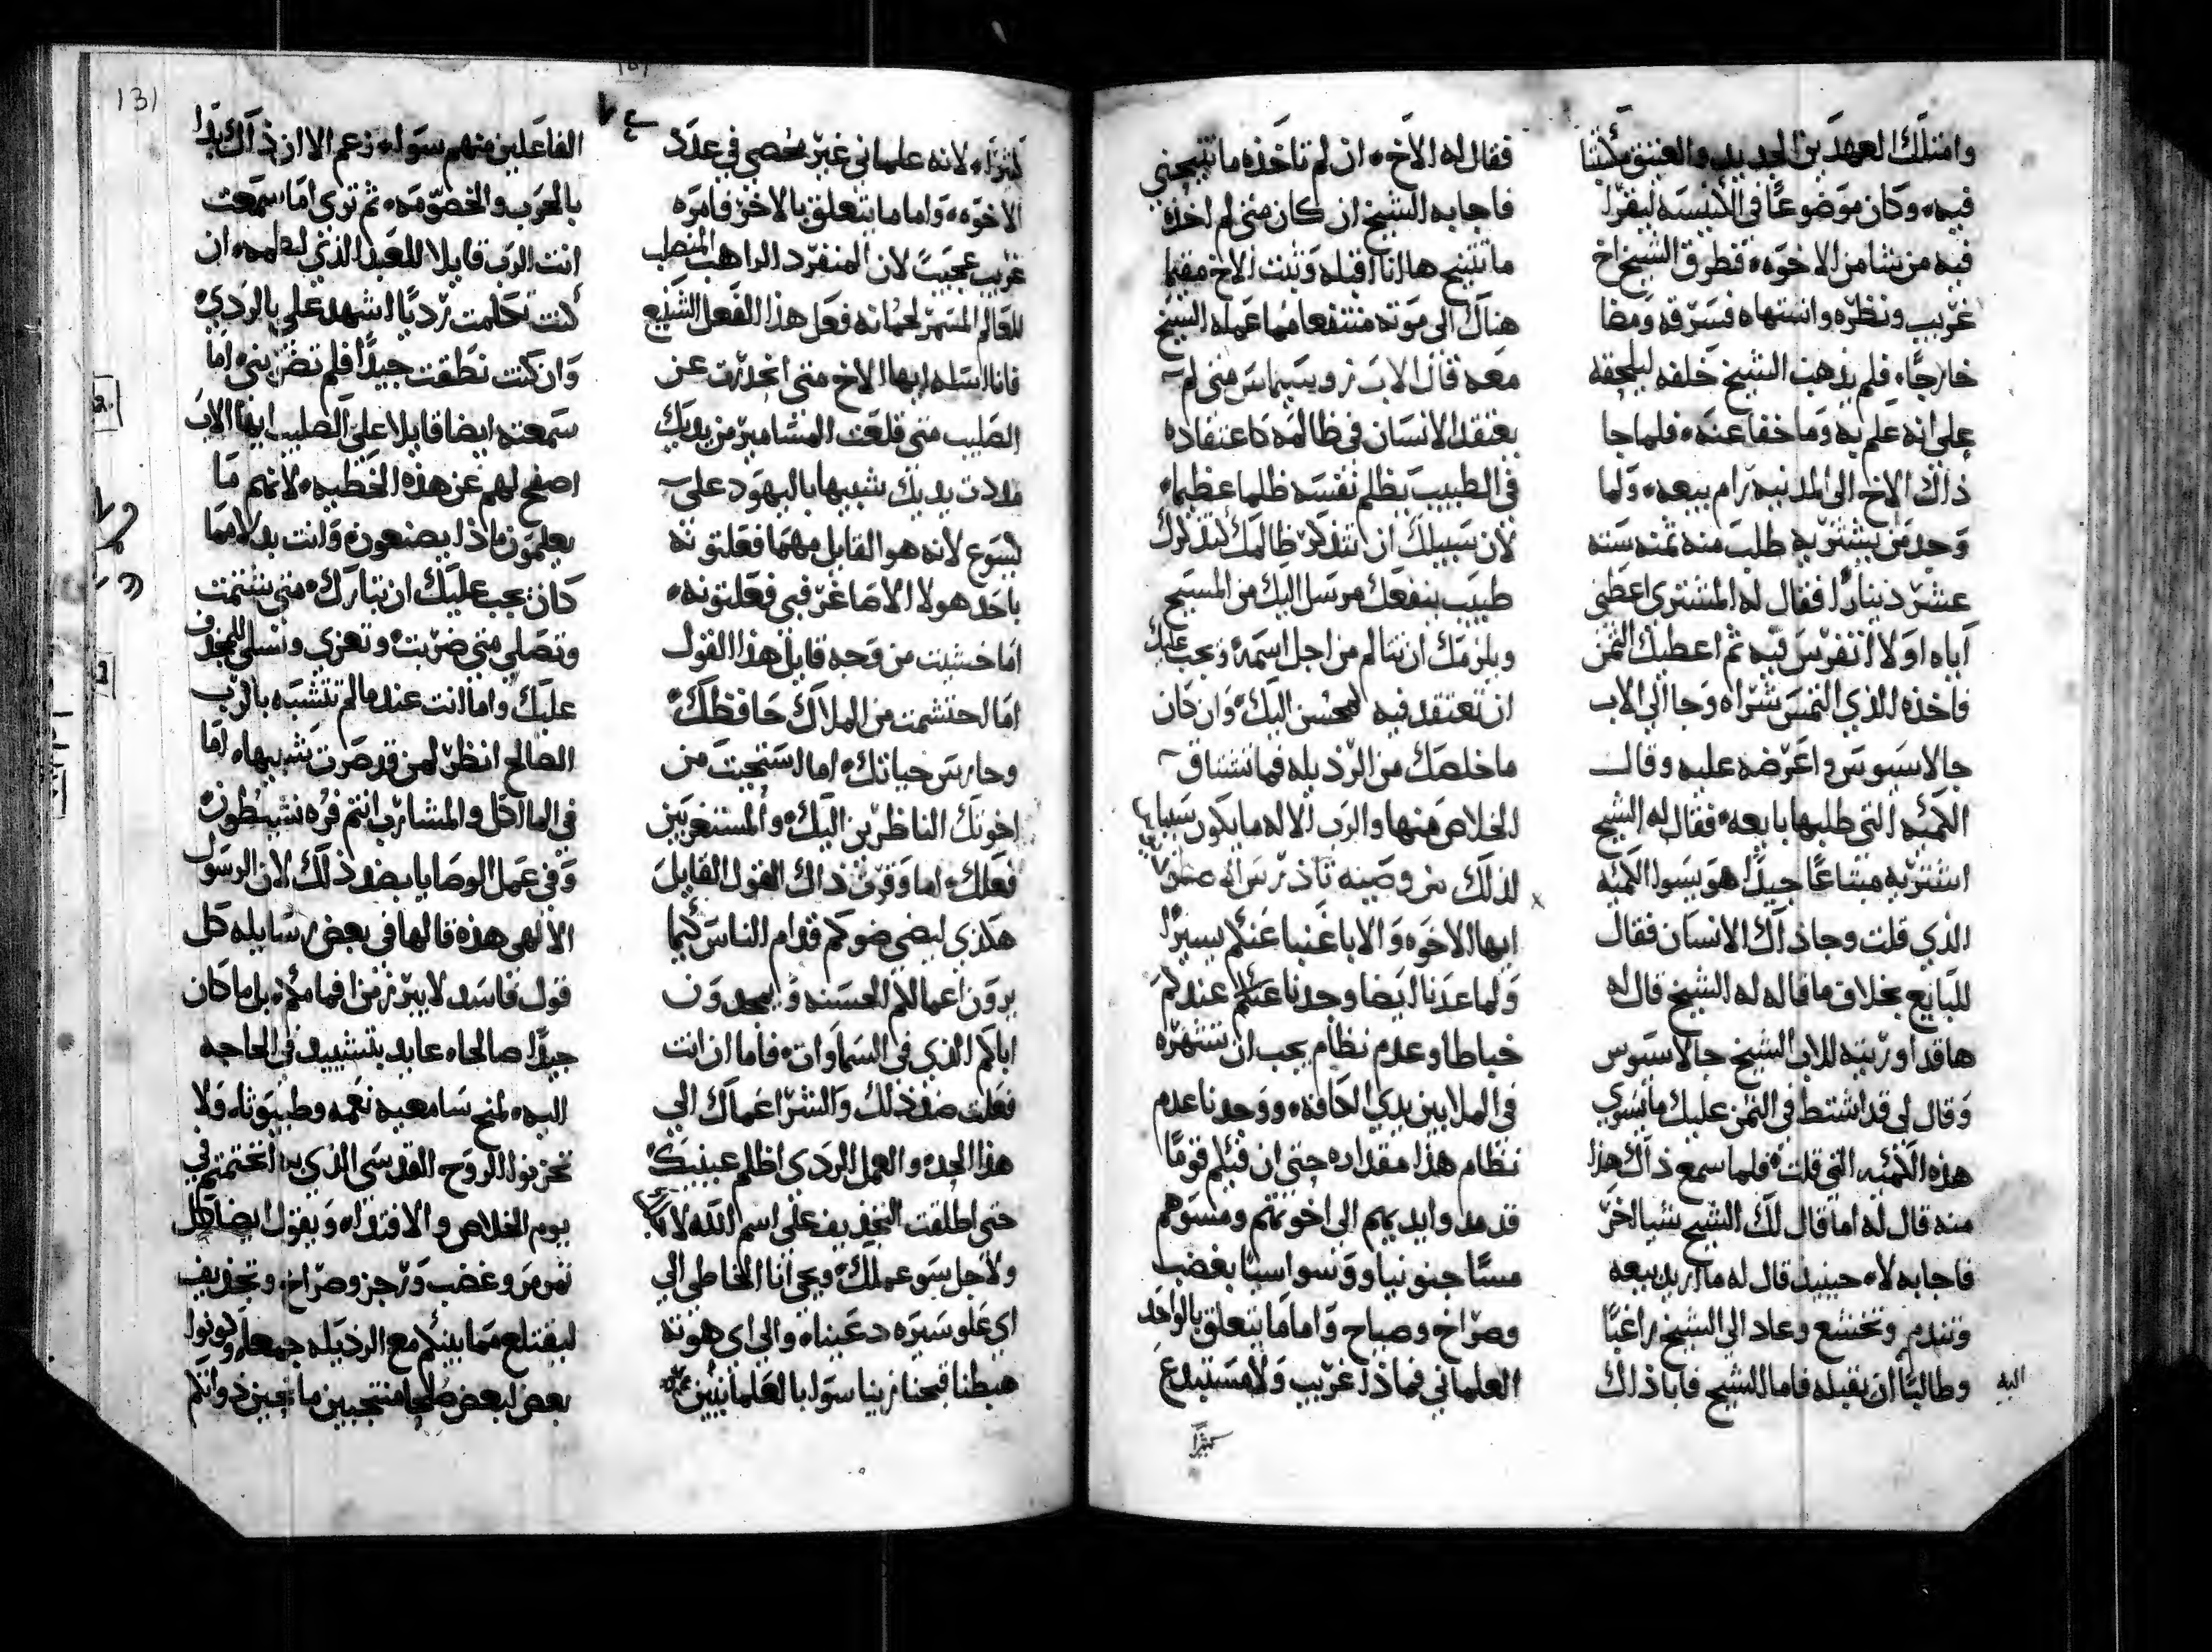 وامتلك العهدين الجديد والعتيق مكتتبا
فيه، وكان موضوعًا في الكنيسه ليقرا
فيه من يشا من الاخوه، فطرق الشيخ اخ
غريب ونظره واشتهاه فسرقه ومضا
خارجًا، فلم يذهب الشيخ خلفه ليلحقه
على انه علم به وما خفا عنه، فلما جا
ذلك الاخ الى المدنيه رام بيعه، ولما
وجد من يشتريه طلب منه ثمنه سته
عشر دينارًا فقال له المشتري اعطني
اياه اولا اتفرس فيه ثم اعطيك الثمن
فاخذه الذي التمس شراه وجا الي الاب
جالاسيوس واعرضه عليه وقال
الكميه التي طلبها بايعه، فقال له الشيخ
اشتريه مبتاعًا جيدًا هو يسوا الكميه
الذي قلت وجا ذاك الانسان فقال
للبايع بخلاف ما قاله له الشيخ قال له
ها قد اوريته للاب الشيخ جالاسيوس
وقال لي قد اشتط في الثمن عليك ما يسوي
هذه الكميه التي قلت، فلما سمع ذاك هذا
منه قال له اما قال لك الشيخ شيا اخر
فاجابه لا، حينيد قال له ما اريد بيعه
وتندم وتخشع وعاد الي الشيخ راغبًا
اليه وطالبًا ان يقبله فاما الشيخ فابا ذلك
فقال له الاخ، ان لم تاخذه ما تنيحني
فاجابه الشيخ ان كان متى لم اخذه
ما تتنيح ها انا اقبله وثبت الاخ مقيما
هناك الى موته منتفعا مما عمله الشيخ
معه قال الاب زوسيماس متى لم
يعتقد الانسان في ظالمه كاعتقاده
في الطبيب يظلم نفسه ظلما عظيما،
لان سبيلك ان تتذكر ظالمك كتذكرك
طبيب ينفعك مرسل اليك من المسيح
ويلزمك ان تتالم من اجل اسمه، ويجب عليك
ان تعتقد فيه كمحسن اليك، وان كان
ما خلصك من الرذيله فما تشتاق
الخلاص منها والرب الاله ما يكون سببا
لذلك
ايها الاخوه والابا غبنا عنكم يسيرًا
ولما عدنا ايضا وجدنا عندكم
خباطا وعدم نظام يجب ان تشهره
في الملا بين يدي الكافه، ووجدنا عدم
نظام هذا مقداره حتى ان فيكم قومًا
قد مدوا ايديهم الى اخوتهم ومسوهم
مسًا جنونيا وقسوا سبًا بغضب
وصراخ وصياح واما ما يتعلق بالواحد
العلماني فماذا غريب ولا مستبدع
كثيرًا
كثيرًا، لانه علماني غير محصي في عدد
الاخوه، واما ما يتعلق بالاخر فامره
غريب عجيبًا لان المنفرد الراهب المنصلب
للعالم المتمرر لحمانه فعل هذا الفعل الشنيع
فانا اسله ايها الاخ متى انحدرت عن
الصليب متى قلعت المسامير من يديك
مددت يديك شبيها باليهود على
يسوع لانه هو القايل مهما فعلتوته
باحد هولا الاصاغر فبي فعلتونه،
اما خشيت من وجه قايل هذا القول
اما احتشمت من الملاك حافظك،
وحارس حياتك، اما استحيت من
اخوتك الناظرين اليك، والمستغربين
فعلك، اما وقرت ذاك القول القايل
هكذي ليضي ضوكم قدام الناس كيما
يرون اعمالكم الحسنه ويمجدون
اباكم الذي في السماوات، فاما ان انت
فعلت ضد ذلك والشر اعماك الي
هذا الحد، والعمل الردي اظلم عينيك،
حتى اطلقت التجذيف على اسم الله
ولاجل سو عملك، ويحي انا الخاطي الي
اي علو سيره دعينا، والي اي هوته
هبطنا قبحنا زينا سوا بالعلمانيين
الفاعلين منهم سوا، زعم الا ان ذاك بدا
بالحرب والخصومه، ثم تري اما سمعت
انت الرب قايلا للعبد الذي لطمه، ان
كنت تكلمت رديًا اشهد علي بالردي،
وان كنت نطقت جيدًا فلم تضربني، اما
سمعته ايضا قايلا على الصليب ايها الاب
اصفح لهم عن هذه الخطيه، لانهم ما
يعلمون ماذا يصنعون، وانت بدلا مما
كان يجب عليك ان تبارك، متى شتمت
وتصلي متى ضربت، وتعزي وتسلي المجدف
عليك، واما انت عندما لم تتشبه بالرب
الصالح انظر لمن قد صرت شبيها، اما
في الماكل والمشارب انتم فره نشيطون،
وفي عمل الوصايا بضد ذلك لان الرسول
الالهي هذه قالها في بعض رسايله كل
قول فاسد لا يبرز من افمامكم، بل ما كان
جيدًا صالحا، عايد بتشييد في الحاجه
اليه، لمنح سامعيه نعمه وطيبوثا، ولا
تحزنوا الروح القدسي الذي به انختمتم في
يوم الخلاص والافتدا، ويقول ايضا كل
تمرمر وغضب ورجز وصراخ، وتجديف
ليقتلع مما بينكم مع الرذيله جمعا، وكونوا
بعض لبعض صلحا متحببين مانعين ذواتكم
131